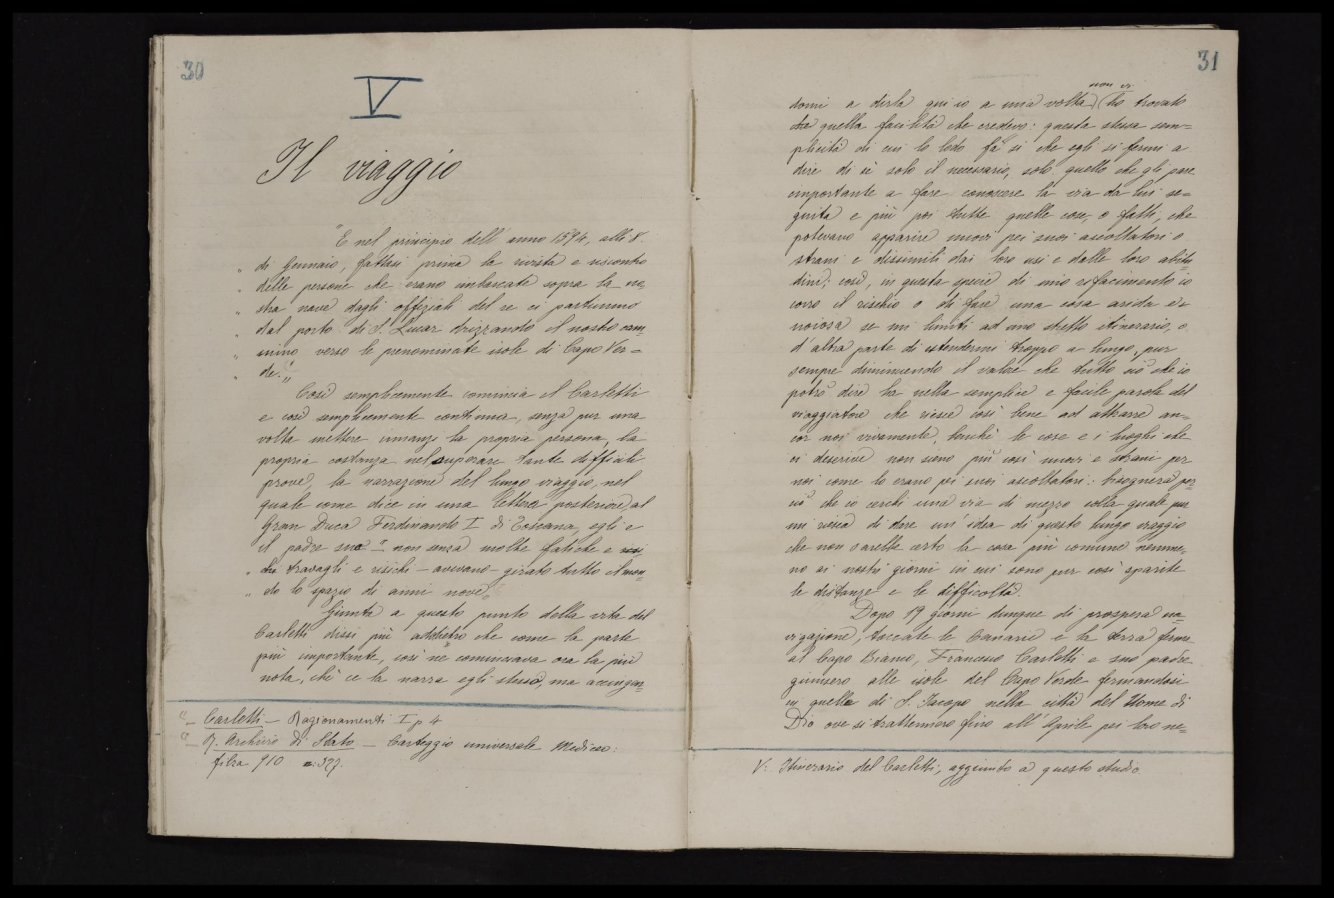 30
V
Il viaggio
"E nel principio dell'anno 1594, alli 8.
" di Gennaio, fattasi prima la rivista e riscontro
" delle persone che erano imbarcate sopra la no
" stra nave dagli offiziali del re ci partimmo
" dal porto di S. Lucar drizzando il nostro cam
" mino verso le prenominate isole di Capo Ver=
" de."
Così semplicemente comincia il Carletti
e così semplicemente continua, senza pur una
volta mettere innanzi la propria persona, la
propria costanza nel superare tante difficili
prove, la narrazione del lungo viaggio, nel
quale come dice in una lettera posteriore, al
Gran Duca Ferdinando I di Toscana, egli e
il padre suo " non senza molte fatiche e
" travagli e risichi - avevano - girato tutto il mon=
" do lo spazio di anni nove."
Giunta a questo punto della vita del
Carletti dissi più addietro che come la parte
più importante, così ne cominciava ora la più
nota, chè ce la narra egli stesso, ma accingen=
Carletti - Ragionamenti I p 4
R. Archivio di Stato - Carteggio universale Mediceo:
filza 910 n: 327.
31
non vi
domi a dirla qui io a una volta ho trovato
quella facilità che credevo: questa stessa sem=
plicità di cui lo lodo fa sì che egli si fermi a
dire di sè solo il necessario, solo quello che gli pare
importante a fare conoscere la via da lui se=
guita e più poi tutte quelle cose, o fatti, che
potevano apparire nuovi pei suoi ascoltatori o
strani e dissimili dai loro usi e dalle loro abitu
dini; così, in questa specie di mio rifacimento io
corro il rischio o di fare una cosa arida e
noiosa se mi limiti ad uno stretto itinerario, o
d'altra parte di estendermi troppo a lungo, pur
sempre diminuendo il valore che tutto ciò che io
potrò dire ha nella semplice e facile parola del
viaggiatore che riesce così bene ad attrarre an=
cor noi vivamente, benchè le cose e i luoghi che
ci descrive non sieno più così nuovi e strani per
noi come lo erano pei suoi ascoltatori: bisognerà per
ciò che io cerchi una via di mezzo colla quale pur
mi riesca di dare un'idea di questo lungo viaggio
che non sarebbe certo la cosa più comune nemme=
no ai nostri giorni in cui sono pur così sparite
le distanze e le difficoltà.
Dopo 19 giorni dunque di prospera na=
vigazione, toccate le Canarie e la terra ferma
al Capo Bianco, Francesco Carletti e suo padre
giunsero alle isole del Capo Verde fermandosi
in quella di S. Jacopo nella città del Nome di
Dio ove si trattennero fino all'Aprile pei loro ne=
V: Itinerario del Carletti, aggiunto a questo studio